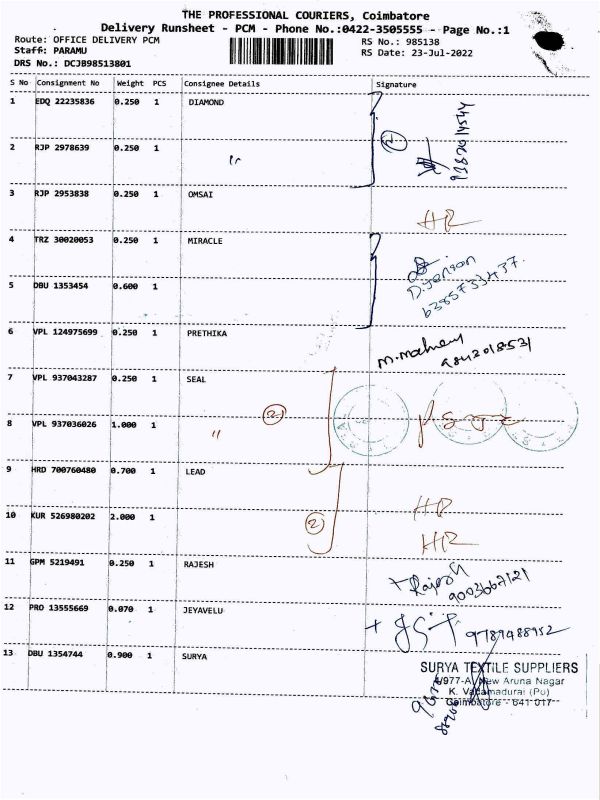 THE PROFESSIONAL COURIERS, Coimbatore
Delivery Runsheet - PCM - Phone No.:0422-3505555 - Page No.:1
Route: OFFICE DELIVERY PCM
RS No.: 985138
Staff: PARAMU
RS Date: 23-Jul-2022
DRS No.: DCJB98513801
S No Consignment No Weight PCS Consignee Details Signature
1 EDQ 22235836 0.250 1 DIAMOND
2 RJP 2978639 0.250 1 "
2
3 RJP 2953838 0.250 1 OMSAI
HR
4 TRZ 30020053 0.250 1 MIRACLE
D. Jenson
6385733437.
5 DBU 1353454 0.600 1
6 VPL 124975699 0.250 1 PRETHIKA
9842018531
7 VPL 937043287 0.250 1 SEAL
2
8 VPL 937036026 1.000 1 "
9 HRD 700760480 0.700 1 LEAD
HR
10 KUR 526980202 2.000 1
2
HR
11 GPM 5219491 0.250 1 RAJESH
+ Rajesh
9003667121
12 PRO 13555669 0.070 1 JEYAVELU
9789488952
13 DBU 1354744 0.900 1 SURYA
SURYA TEXTILE SUPPLIERS
4/977-A, New Aruna Nagar
K. Vadamadurai (Po)
Coimbatore - 641 017